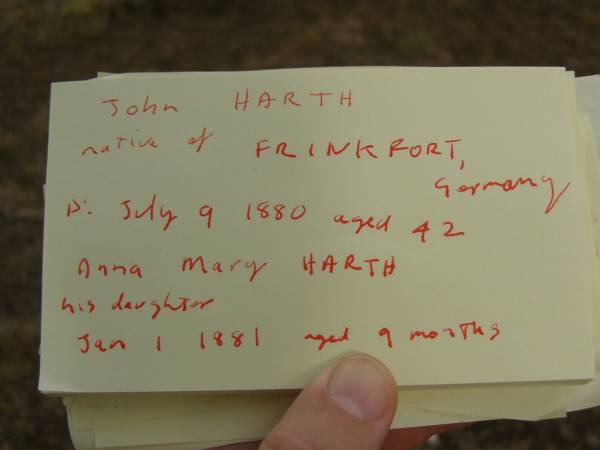 John HARTH
native of FRINKFORT,
Germany
D: July 9 1880 aged 42
Anna Mary HARTH
his daughter
Jan 1 1881 aged 9 months